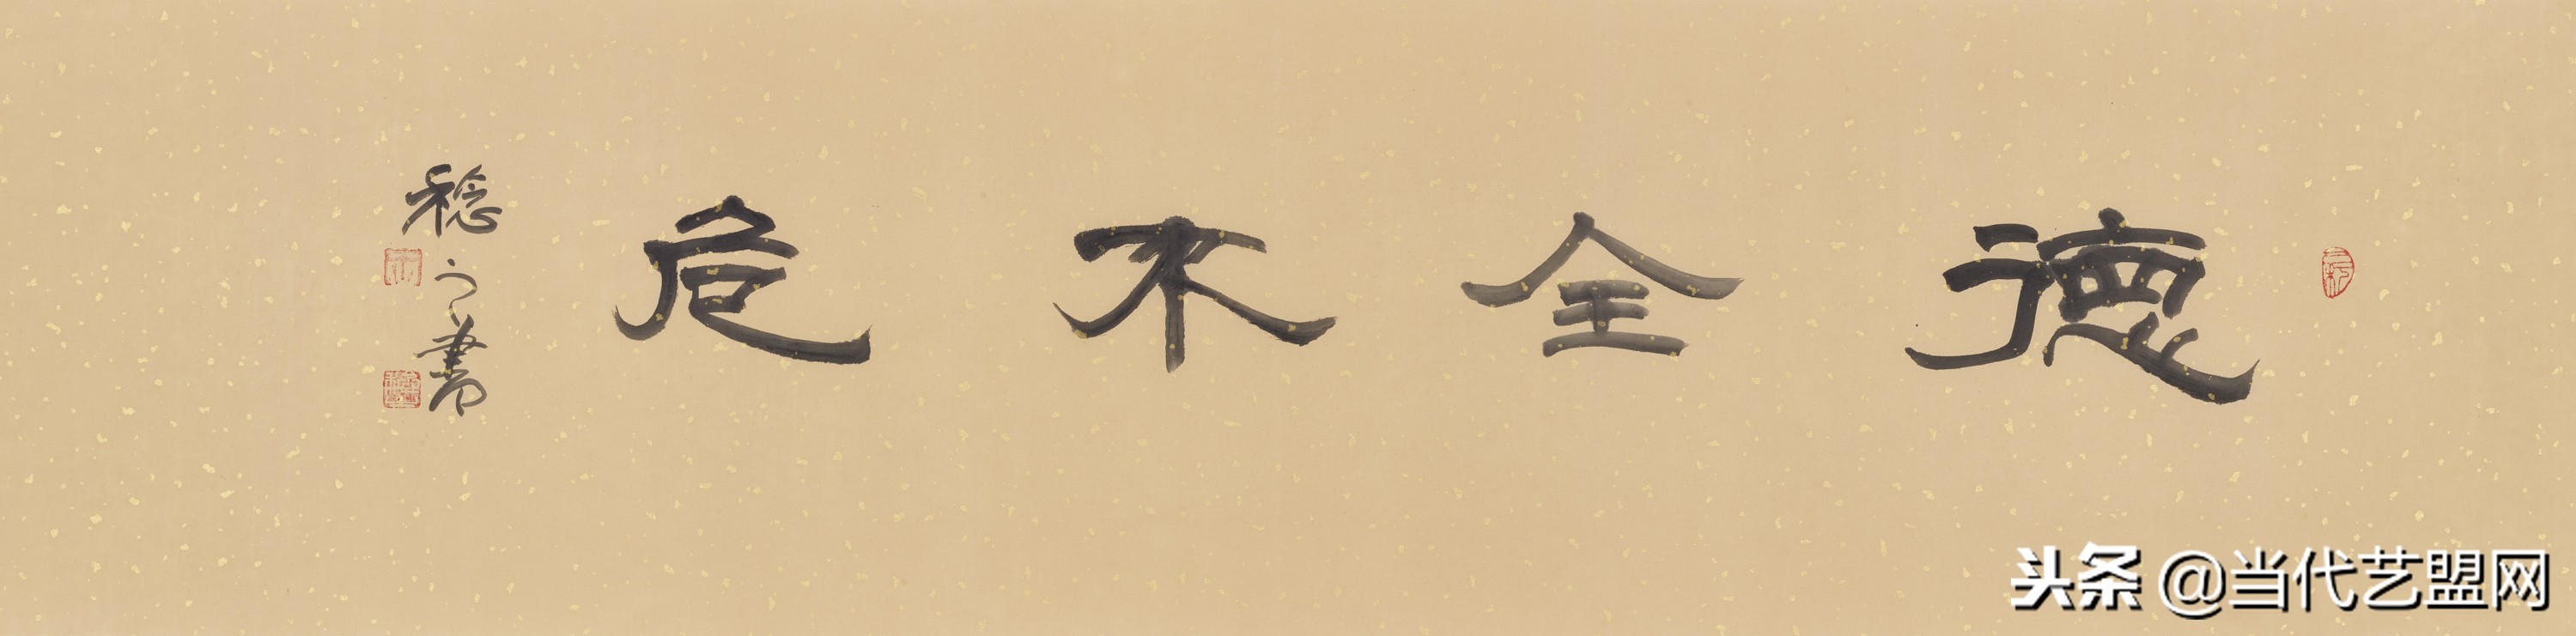 德全不危
稔之書
头条 @当代艺盟网